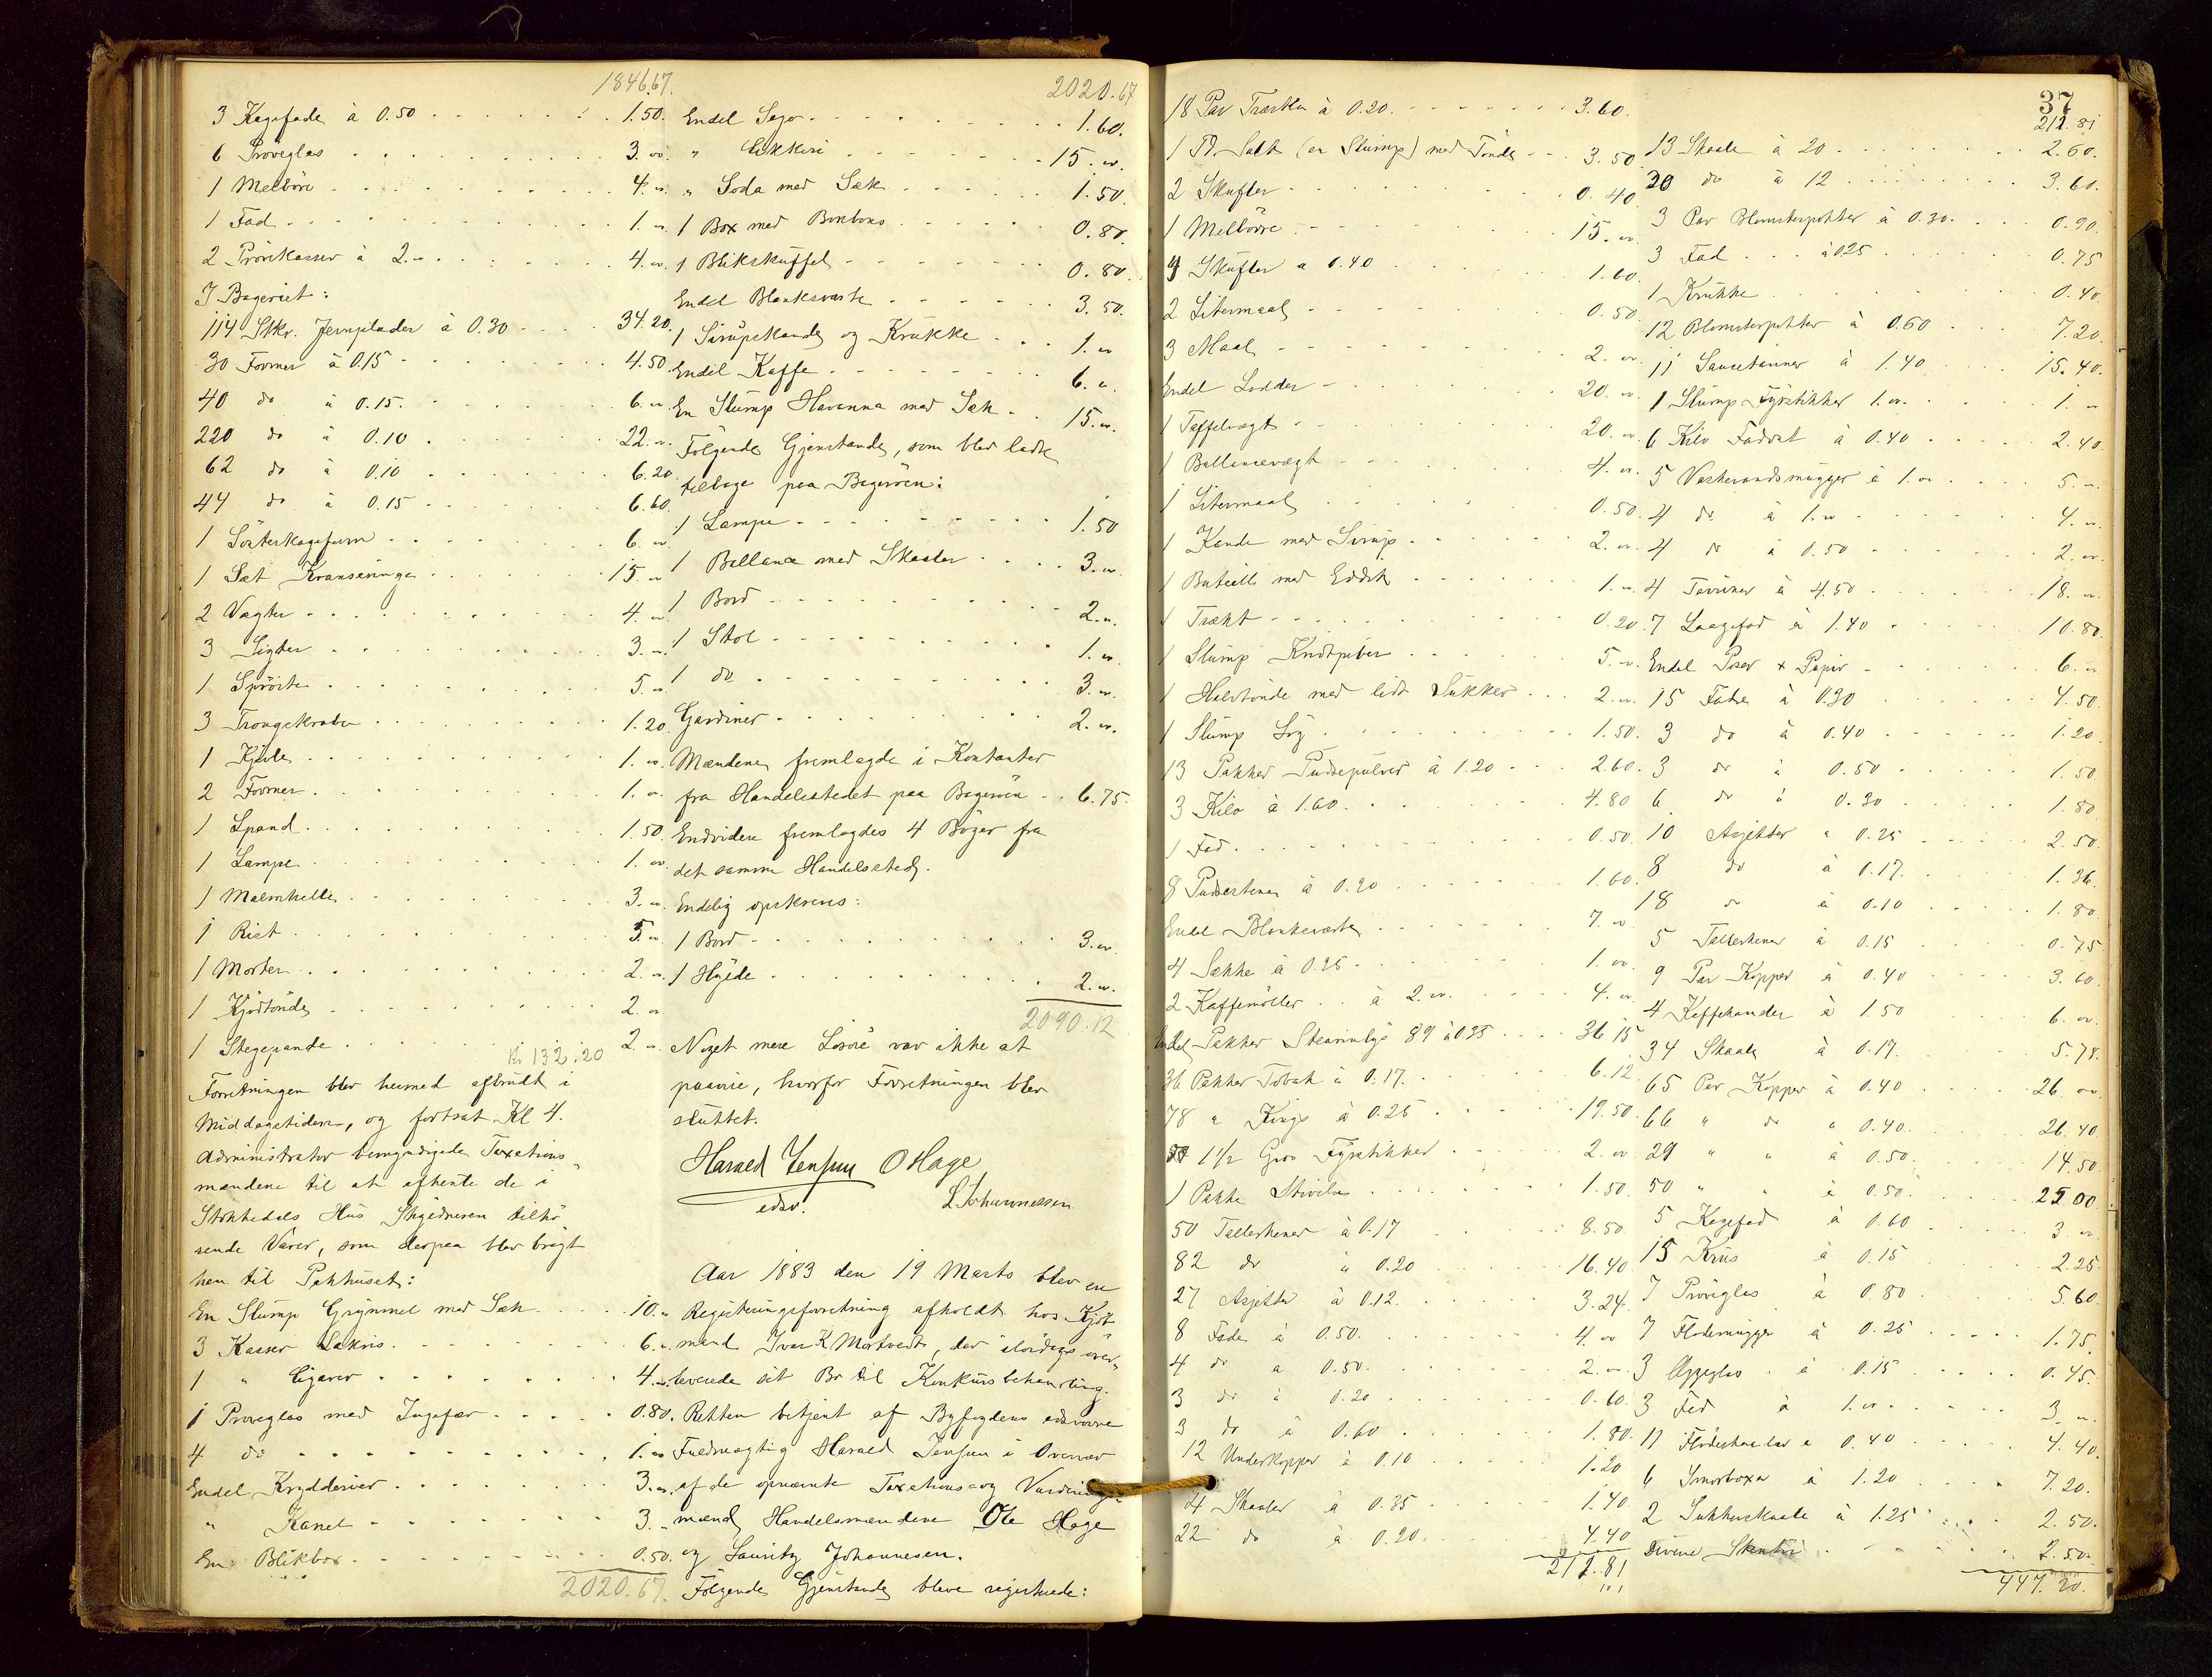 1846.67.
3 Kagefade à 0.50 1.50.
6 Pröveglas 3. "
1 Melböre 4. "
1 Fad 1. "
2 Prövekasser à 2. " 4. "
I Bageriet:
114 Stkr. Jernplader à 0.30 34.20.
30 Former à 0.15 4.50
40 do à 0.15. 6. "
220 do à 0.10 22. "
62 do à 0.10 6.20
44 do à 0.15 6.60
1 Sösterkageform 6. "
1 Sæt Kranseringe 15. "
2 Vægter 4. "
3 Sigter 3. "
1 Spröite 5. "
3 Traugskraber 1.20
1 Kjole 1. "
2 Former 1. "
1 Spand 1.50
1 Lampe 1. "
1 Malmhelle 3. "
1 Rist 5. "
1 Morter 2. "
1 Kjödtönde 2. "
1 Stegepande 2. "
Kr 132.20
Forretningen blev hermed afbrudt i
Middagstiden, og fortsat Kl 4.
Administrator bemyndigede Taxations
mændene til at afhente de i
Stokkedals Hus Skyldneren tilhö
rende Varer, som derpaa blev bragt
hen til Pakhuset:
En Slump Grynmel med Sæk 10. "
3 Kasser Lakris 6. "
1 " Cigarer 4. "
1 Pröveglas med Ingefær 0.80.
4 do 1. "
Endel Krydderier 3. "
" Kanel 3. "
En Blikbox 0.50.
2020.67.
2020.67
Endel Sago 1.60.
" Cikkori 15. "
" Soda med Sæk 1.50.
1 Box med Bonbons 0.80.
1 Blikskuffel 0.80
Endel Blanksværte 3.50.
1 Sirupskande og Krukke 1. "
Endel Kaffe 6. "
En Slump Havanna med Sæk 15. "
Fölgende Gjenstande, som blev ladte
tilbage paa Bageröen:
1 Lampe 1.50
1 Ballance med Skaaler 3. "
1 Bord 2. "
1 Stol 1. "
1 do 3. "
Gardiner 2. "
Mændene fremlagde i Kontanter
fra Handelsstedet paa Bageröen 6.75.
Endvidere fremlagdes 4 Böger fra
det samme Handelssted.
Endelig opskreves:
1 Bord 3. "
1 Hylde 2. "
2090.12
Noget mere Lösöre var ikke at
paavise, hvorfor Forretningen blev
sluttet.
Harald Jensen O Hage
edsv. L Johannessen
Aar 1883 den 19 Marts blev en
Registreringsforretning afholdt hos Kjöb
mand Ivar K Mortvedt, der ilördags over
leverede sit Bo til Konkursbehandling.
Retten betjent af Byfogdens edsvorne
Fuldmægtig Harald Jensen i Overvær
af de opnævnte Taxations og Vurderings
mænd Handelsmændene Ole Hage
og Lauritz Johannesen.
Fölgende Gjenstande bleve registrerede:
37
18 Par Træsko à 0.20. 3.60.
1 Td. Salt (en Slump) med Tönde 3.50
2 Skufler 0.40
1 Melbörre 15. "
4 Skufler a 0.40 1.60.
2 Litermaal 0.50
3 Maal 2. "
Endel Lodder 20. "
1 Taffelvægt 20. "
1 Ballancevægt 4. "
1 Litermaal 0.50.
1 Kande med Sirup 2. "
1 Buteille med Eddik 1. "
1 Trækt 0.20
1 Slump Kridtpiber 5. "
1 Halvtönde med lidt Sukker 2. "
1 Slump Lög 1.50.
13 Pakker Pudsepulver à 1.20 2.60.
3 Kilo à 1.60. 4.80
1 Fad 0.50
8 Pudsestene à 0.20 1.60.
Endel Blanksværte 7. "
4 Sække à 0.25 1. "
2 Kaffemöller à 2. " 4. "
Endel Pakker Stearinlys 89 à 0.35 36 15
36 Pakker Tobak à 0.17. 6.12
78 " Kings à 0.25 19.50
1 1/2 Gros Fyrstikker 2. "
1 Pakke Stivelse 1.50.
50 Tallerkener à 0.17 8.50
82 do à 0.20 16.40
27 Asjetter à 0.12. 3.24.
8 Fade à 0.50. 4. "
4 do a 0.50. 2. "
3 do à 0.20 0.60.
3 do à 0.60 1.80.
12 Underkopper à 0.10 1.20
4 Skaaler à 0.35 1.40
22 do à 0.20. 4.40
212.81
212.81
13 Skaale à 20 2.60.
30 do à 12 3.60.
3 Par Blomsterpotter à 0.30. 0.90.
3 Fad à 0.25 0.75
1 Krukke 0.40.
12 Blomsterpotter à 0.60 7.20.
11 Saucetanner à 1.40 15.40.
1 Slump Fyrstikker 1. " 1. "
6 Kilo Fadost à 0.40 2.40.
5 Vaskevandsmugger à 1. " 5. "
4 do à 1. " 4. "
4 do à 0.50 2. "
4 Terriner à 4.50 18. "
7 Laagefad à 1.40 10.80.
Endel Poser & Papir 6. "
15 Fade à 0.30 4.50.
3 do à 0.40 1.20
3 do à 0.50 1.50
6 do à 0.30 1.80
10 Asjetter à 0.25 2.50.
8 do à 0.17. 1.36.
18 do à 0.10 1.80.
5 Tallerkener à 0.15 0.75
9 Par Kopper à 0.40 3.60.
4 Kaffekander à 1.50 6. "
34 Skaale à 0.17. 5.78.
65 Par Kopper à 0.40 26. "
66 " do à 0.40. 26.40
29 " " à 0.50. 14.50.
50 " " à 0.50. 25.00.
5 Kagefad à 0.60 3. "
15 Krus à 0.15 2.25
7 Pröveglas à 0.80 5.60
7 Flödemugger à 0.25 1.75.
3 Æggeglas à 0.15 0.45.
3 Fad à 1. " 3. "
11 Flödeskaaler à 0.40 4.40.
6 Smörboxer à 1.20 7.20.
2 Sukkerskaale à 1.25 2.50.
Diverse 2.50.
447.20.